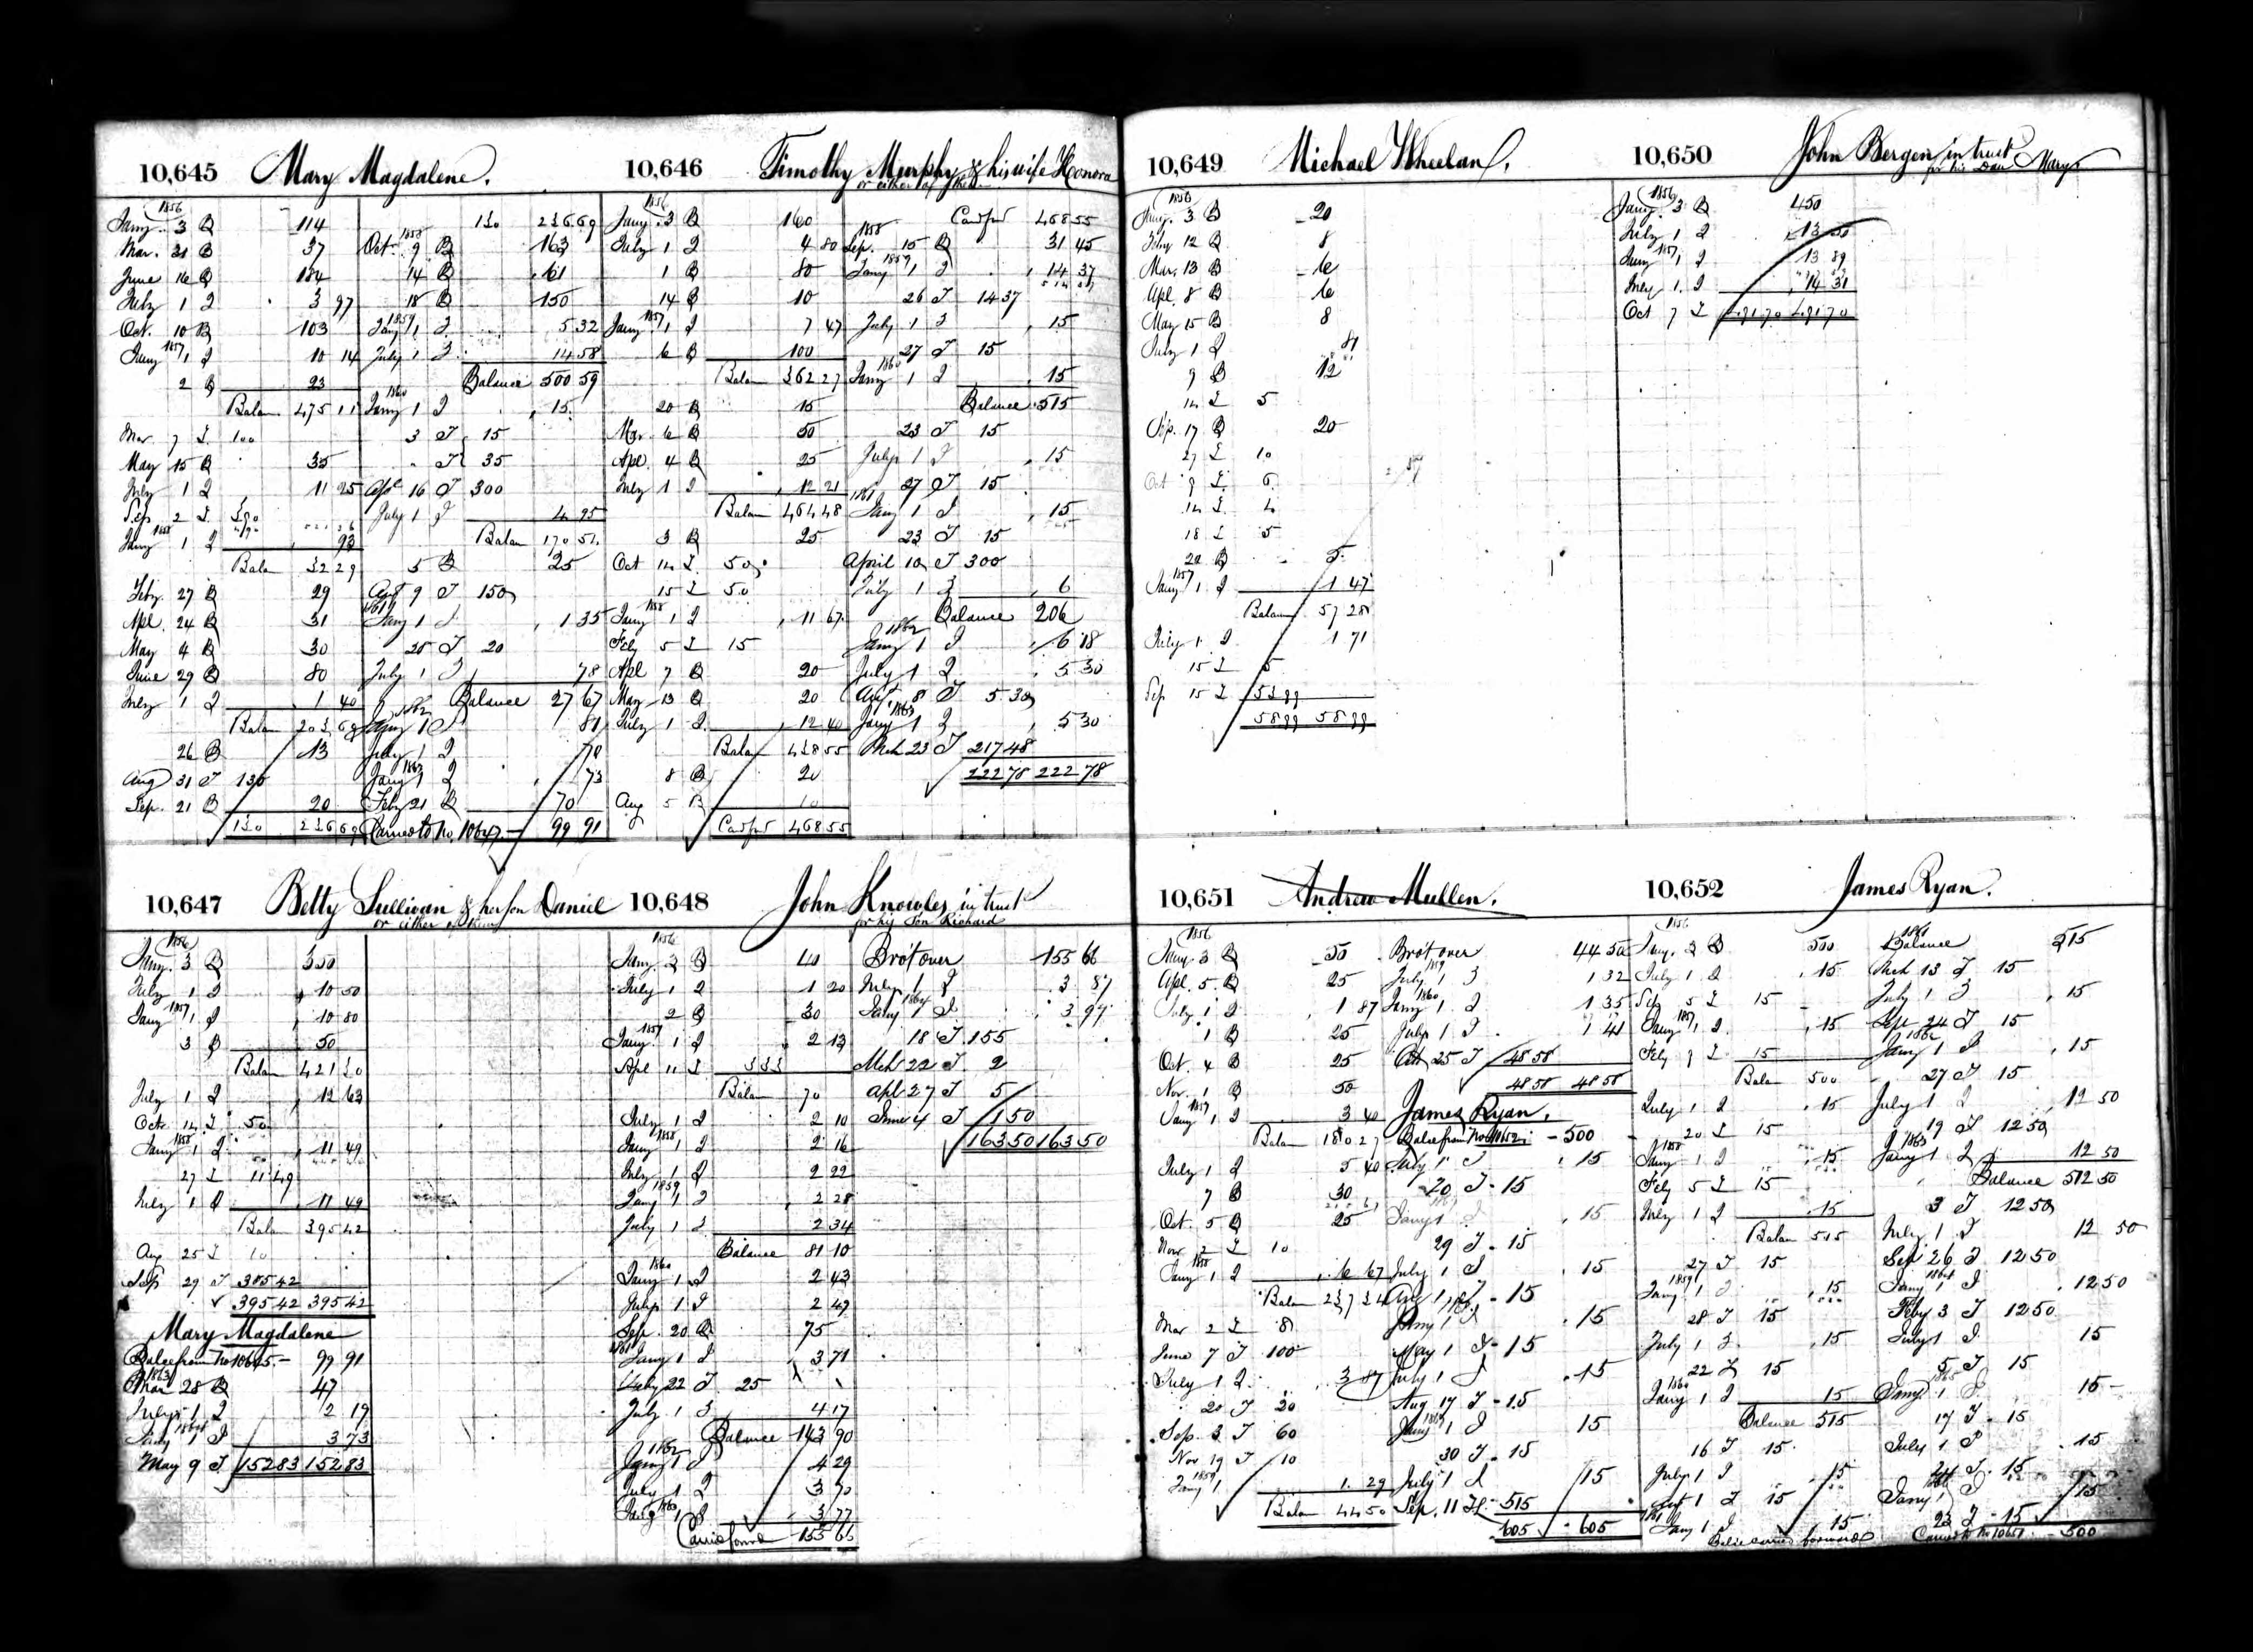 10,645 Mary Magdalene.
1856
Jany. 3 B 114
Mar. 31 B 37
June 16 B 184
July 1 I 3 97
Oct. 10 B 103
Jany 1857 1 I 10 14
2 B 23
Balan 475 11
Mar 7 I 100
May 15 B 35
July 1 I 11 25
Sep 2 I
Jany 1858 1 I 93
Balan 32 29
Feby. 27 B 29
Apl. 24 B 31
May 4 B 30
June 29 B 80
July 1 I 1 40
Balan 203 69
26 B 13
Aug 31 T 130
Sep. 21 B 20
130 236 69
130 236 69
1858
Oct. 9 B 163
14 B 61
18 B 150
1859
Jany 1 I 5 32
July 1 I 14 58
Balance 500 59
1860
Jany 1 I 15
3 T 15
T 35
Apl 16 T 300
July 1 I 4 95
Balan 170 51
5 B 25
Augt 9 T 150
1861
Jany 1 I 1 35
25 T 20
July 1 I 78
Balance 27 67
1862
Jany 1 I 81
July 1 I 70
1863
Jany 1 I 73
Feby 21 B 70
Carried to No. 10647 99 91
10,646 Timothy Murphy & his wife Honora
or either of them
1856
Jany. 3 B 160
July 1 I 4 80
1 B 80
14 B 10
Jany 1857 1 I 7 47
6 B 100
Balan 362 27
20 B 15
Mar. 6 B 50
Apl. 4 B 25
July 1 I 12 21
Balan 464 48
3 B 25
Oct 14 I 50
15 I 50
Jany 1858 1 I 11 67
Feby 5 I 15
Apl 7 B 20
May 13 B 20
July 1 I 12 40
Balan 438 55
8 B 20
Aug 5 B 10
Card for 468 55
Card for 468 55
1858
Sep. 15 B 31 45
1859
Jany 1 I 14 37
26 T 14 37
July 1 I 15
27 T 15
1860
Jany 1 I 15
Balance 515
23 T 15
July 1 I 15
27 T 15
1861
Jany 1 I 15
23 T 15
April 10 T 300
July 1 I 6
Balance 206
1862
Jany 1 I 6 18
July 1 I 5 30
Augt. 8 T 5 30
1863
Jany 1 I 5 30
Mch 23 T 217 48
222 78 222 78
10,647 Betty Sullivan & her son Daniel
or either of them
1856
Jany. 3 B 350
July 1 I 10 50
Jany 1857 1 I 10 80
3 B 50
Balan 421 30
July 1 I 12 63
Octr 14 I 50
Jany 1858 1 I 11 49
27 I 11 49
July 1 I 11 49
Balan 395 42
Aug 25 I 10
Sep 29 T 385 42
395 42 395 42
Mary Magdalene
Balce from No 10645 - 99 91
1863
Mar 28 B 47
July 1 I 2 19
Jany 1864 1 I 3 73
May 9 T 152 83 152 83
10,648 John Knowles in trust
for his Son Richard
1856
Jany. 3 B 40
July 1 I 1 20
2 B 30
Jany 1857 1 I 2 13
Apl 11 I 3 33
Balan 70
July 1 I 2 10
Jany 1858 1 I 2 16
July 1 I 2 22
Jany 1859 1 I 2 28
July 1 I 2 34
Balance 81 10
1860
Jany 1 I 2 43
July 1 I 2 49
Sep. 20 B 75
1861
Jany 1 I 3 71
July 22 T 25
July 1 I 4 17
Balance 143 90
1862
Jany 1 I 4 29
July 1 I 3 70
Jany 1863 1 I 3 77
Carried forwd 155 66
Brot over 155 66
July 1 I 3 87
Jany 1864 1 I 3 97
18 T 155
Mch 22 T 2
Apl 27 T 5
June 4 T 1 50
163 50 163 50
10,649 Michael Wheelan.
1856
Jany. 3 B 20
Feby 12 B 8
Mar. 13 B 6
Apl. 8 B 6
May 15 B 8
July 1 I 81
9 B 12
14 I 5
Sep. 17 B 20
27 I 10
Oct 9 I 6
14 I 4
18 I 5
22 B 5
Jany 1857 1 I 1 47
Balan 57 28
July 1 I 1 71
15 I 5
Sep 15 I 53 99
58 99 58 99
10,650 John Bergen in trust
for his Dau Mary
1856
Jany. 3 B 450
July 1 I 13 50
Jany 1857 1 I 13 89
July 1 I 14 31
Oct 7 I 491 70 491 70
10,651 Andrew Mullen.
1856
Jany 3 B 50
Apl. 5 B 25
July 1 I 1 87
1 B 25
Oct. 4 B 25
Nov. 1 B 50
Jany 1857 1 I 3 40
Balan 180 27
July 1 I 5 40
7 B 30
Oct. 5 B 25
Nov 2 I 10
Jany 1858 1 I 6 67
Balan 237 34
Mar 2 I 8
June 7 T 100
July 1 I 3 87
20 T 20
Sep. 2 T 60
Nov 19 T 10
1859
Jany 1 1 29
Balan 44 50
Brot over 44 50
1859
July 1 I 1 32
1860
Jany 1 I 1 35
July 1 I 1 41
Oct 25 T 48 58
48 58 48 58
James Ryan.
Balce from No 10652 - 500
July 1 I 15
20 T 15
Jany 1 I 15
29 T 15
July 1 I 15
Aug 1 T 15
Jany 1 I 15
May 1 T 15
July 1 I 15
Aug 17 T 15
Jany 1 I 15
30 T 15
July 1 I 15
Sep. 11 T 515
605 605
10,652 James Ryan.
1856
Jany. 3 B 500
July 1 I 15
Sep 5 I 15
Jany 1857 1 I 15
Feby 9 I 15
Balan 500
July 1 I 15
20 I 15
Jany 1858 1 I 15
Feby 5 I 15
July 1 I 15
Balan 515
27 T 15
1859
Jany 1 I 15
28 T 15
July 1 I 15
22 T 15
1860
Jany 1 I 15
Balance 515
16 T 15
July 1 I 15
1 T 15
1861
Jany 1 I 15
Balce carried forward
1861
Balance 515
Mch 13 T 15
July 1 I 15
Sept 24 T 15
1862
Jany 1 I 15
27 T 15
July 1 I 12 50
19 T 12 50
1863
Jany 1 I 12 50
Balance 512 50
3 T 12 50
July 1 I 12 50
Sep 26 T 12 50
1864
Jany 1 I 12 50
Feby 3 T 12 50
July 1 I 15
5 T 15
1865
Jany 1 I 15
17 T 15
July 1 I 15
24 T 15
Jany 1 I 15
23 T 15
Carried to No 10651 - 500